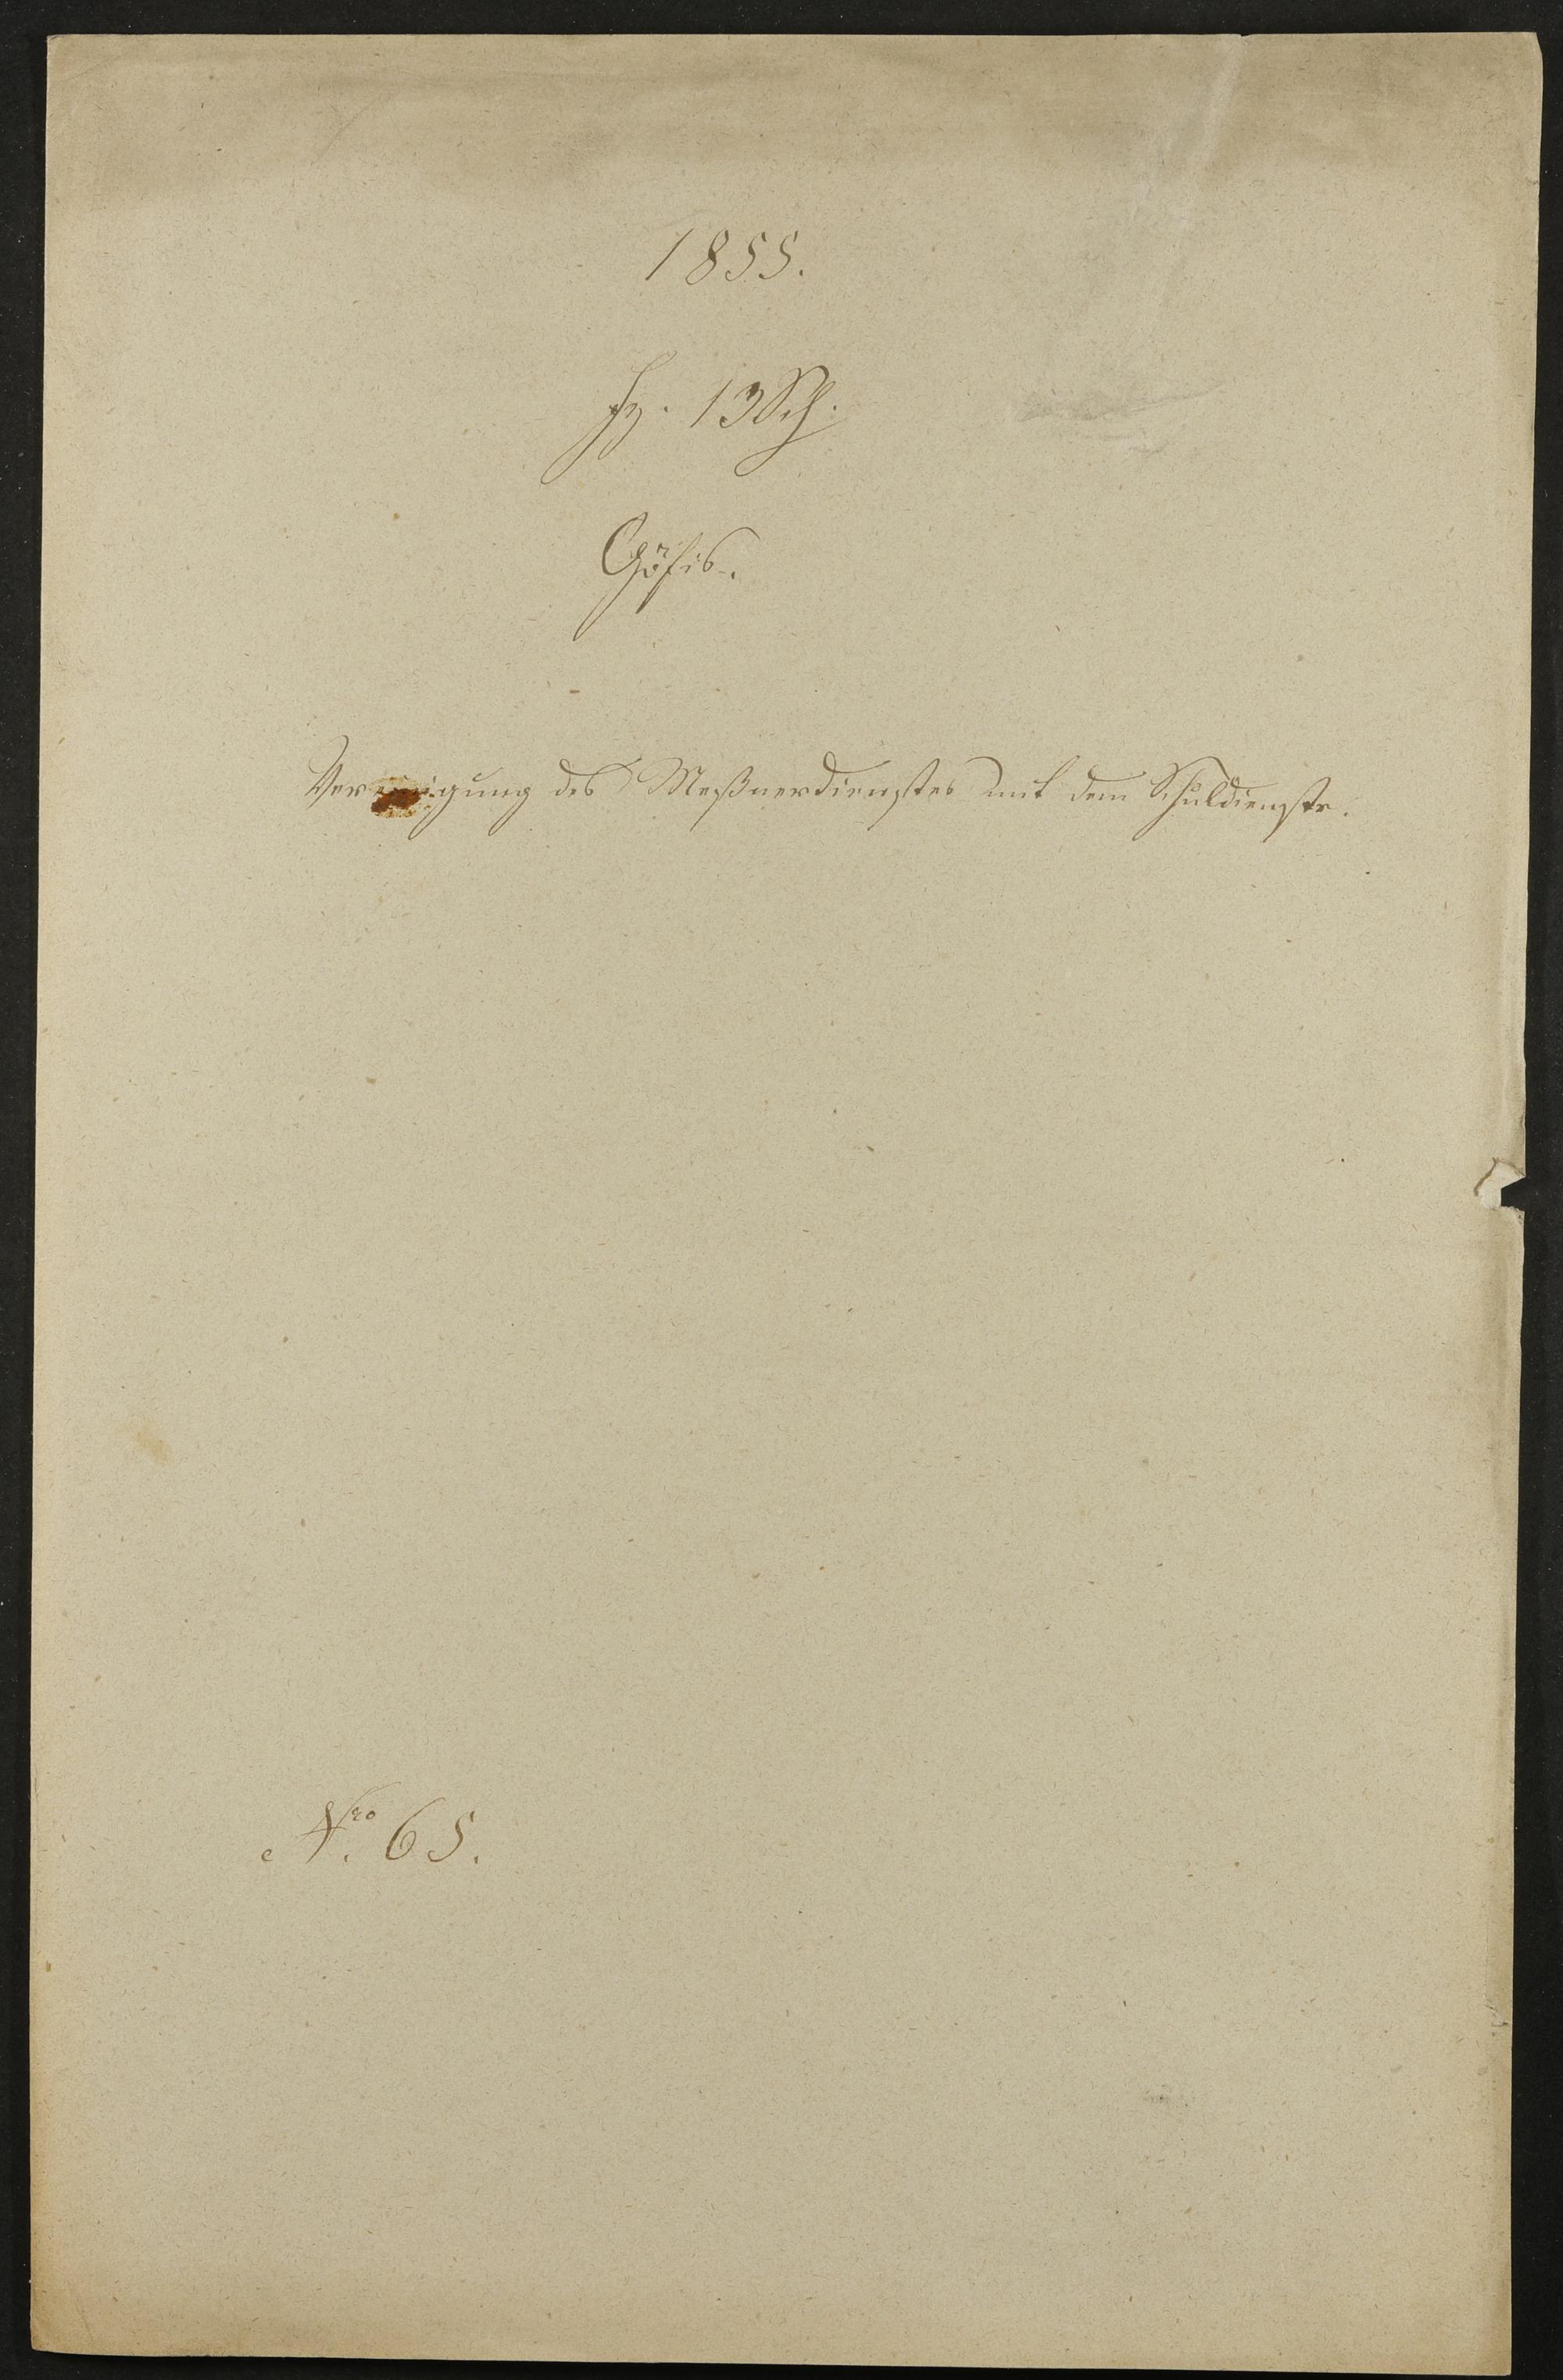 1855.
Fz. 13 Sch.
Göfis.
Vereinigung des Meßnerdienstes mit dem Schuldienste.
Nro. 65.